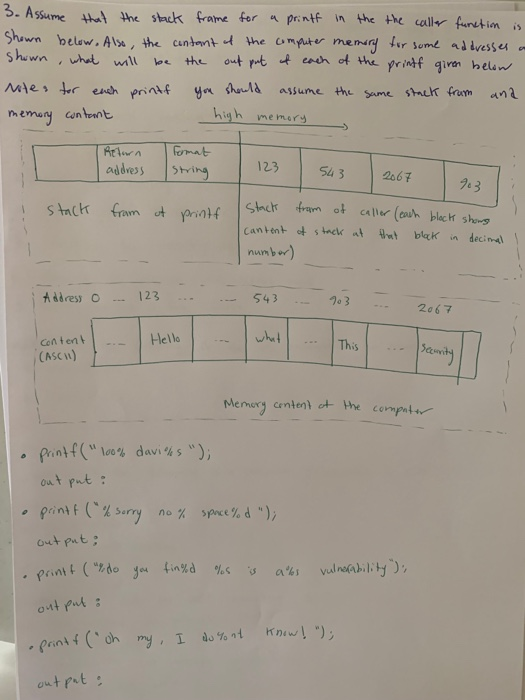 3. Assume that the stack frame for a printf in the the caller function is
Shown below. Also, the content of the computer memory for some addresses
shown, what will be the out put of each of the printf given below
Notes for each printf you should assume the same stack fram and
memory content
high memory
Return address
Format string
123
543
2067
903
stack fram of printf
Stack fram of caller (each block shows
content of stack at that block in decimal
number)
Address 0 ... 123 ... ... 543 ... 903 ... 2067
content (ASCII)
... Hello ... what ... This ... Security
Memory content of the computer
• printf("100% davi%s");
out put :
• printf("%sorry no % space%d");
output:
• printf("%do you fin%d %s is a%s vulnerability");
out put :
• printf("oh my, I do%nt know! ");
out put :